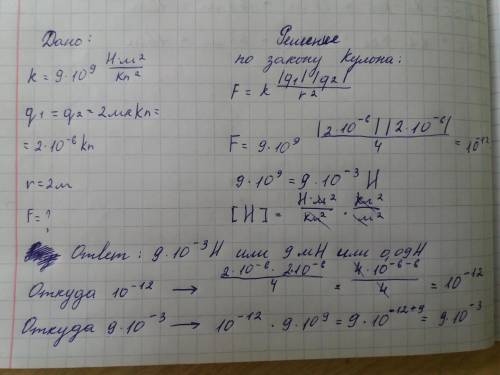 Дано:
k = 9·10⁹ Н·м²/Кл²
q₁ = q₂ = 2мкКл =
= 2·10⁻⁶ Кл
r = 2м
F = ?
Решение
по закону Кулона:
F = k |q₁| |q₂| / r²
F = 9·10⁹ |2·10⁻⁶| |2·10⁻⁶| / 4 = 10⁻¹²
9·10⁹ = 9·10⁻³ Н
[Н] = Н·м²/Кл² · Кл²/м²
Ответ: 9·10⁻³Н или 9мН или 0,09Н
Откуда 10⁻¹² → 2·10⁻⁶·2·10⁻⁶ / 4 = 4·10⁻⁶⁻⁶ / 4 = 10⁻¹²
Откуда 9·10⁻³ → 10⁻¹²·9·10⁹ = 9·10⁻¹²⁺⁹ = 9·10⁻³